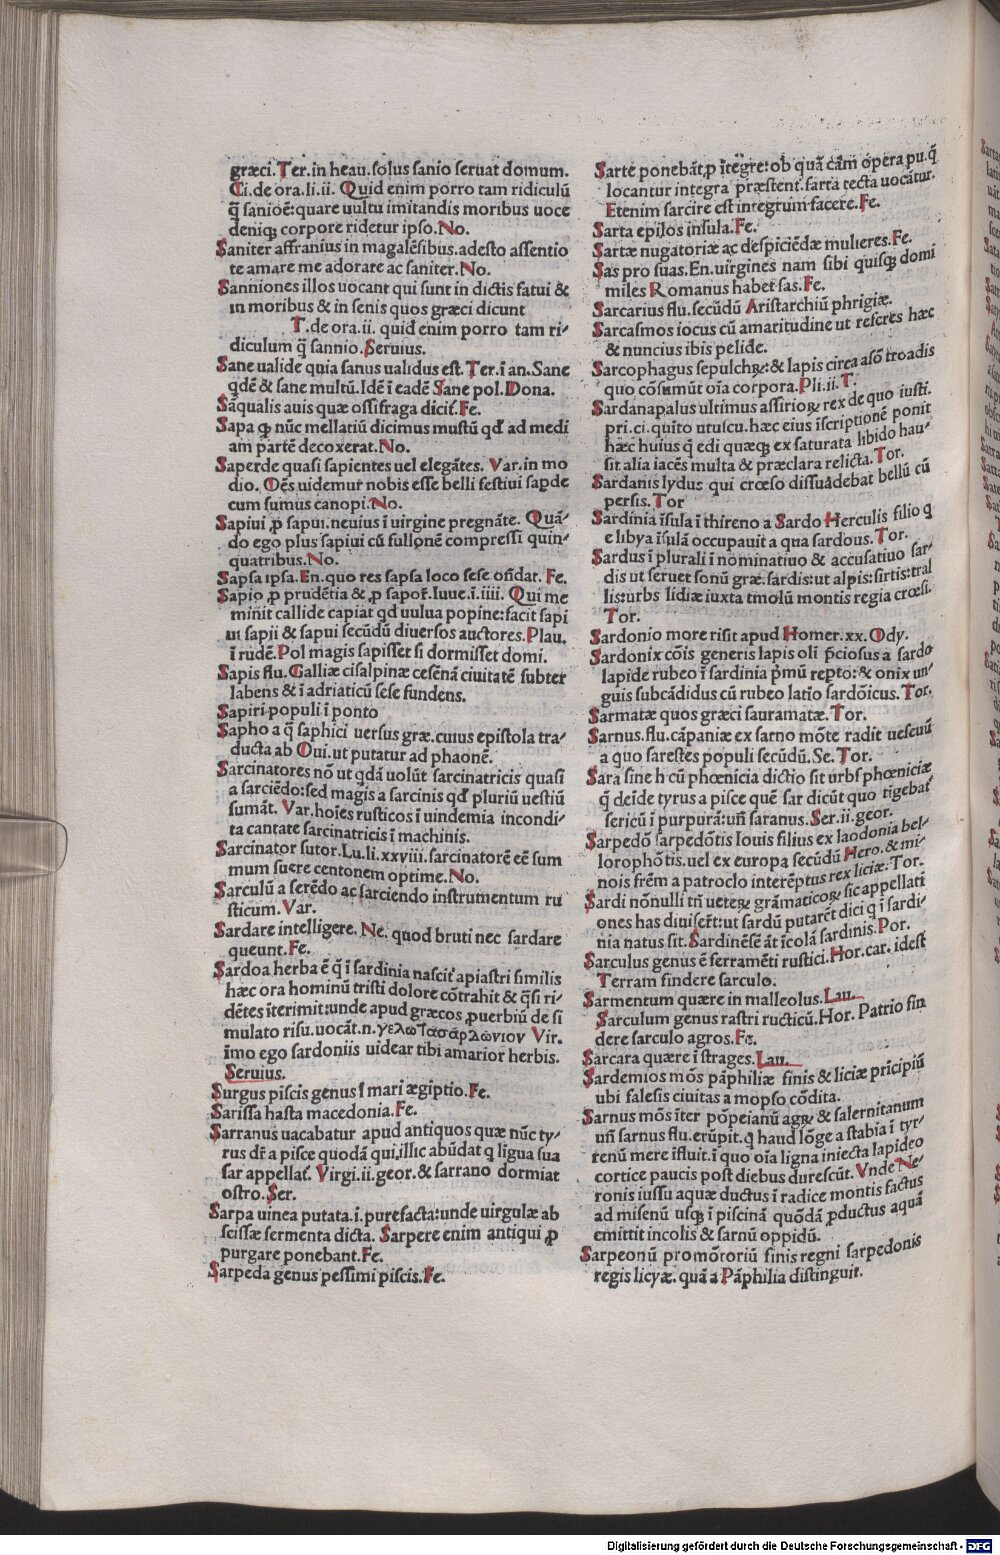 græci.Ter.in heau.solus sanio seruat domum.
Ci.de ora.li.ii. Quid enim porro tam ridiculū
q̄ sanioē:quare uultu imitandis moribus uoce
deniqꝫ corpore ridetur ipso.No.
Saniter affranius in magalēsibus.adesto assentio
te amare me adorare ac saniter.No.
Sanniones illos uocant qui sunt in dictis fatui &
in moribus & in senis quos græci dicunt
T.de ora.ii. quid enim porro tam ri-
diculum q̄ sannio.Seruius.
Sane ualide quia sanus ualidus est. Ter.ī an.Sane
qdē & sane multū.Idē ī eadē Sane pol.Dona.
Sāqualis auis quæ ossifraga dicit̃.Fe.
Sapa qꝫ nūc mellatiū dicimus mustū qd̃ ad medi
am partē decoxerat.No.
Saperde quasi sapientes uel elegātes. Var.in mo
dio. Oēs uidemur nobis esse belli festiui sapde
cum sumus canopi.No.
Sapiui ꝓ sapui.neuius ī uirgine pregnāte. Quā-
do ego plus sapiui cū fullonē compressi quin-
quatribus.No.
Sapsa ipsa.En.quo res sapsa loco sese oñdat. Fe.
Sapio ꝓ prudētia & ꝓ sapor̃.Iuue.ī.iiii. Qui me
miñit callide capiat qd uulua popine:facit sapi
ui sapii & sapui secūdū diuersos auctores.Plau.
ī rudē.Pol magis sapisset si dormisset domi.
Sapis flu.Galliæ cisalpinæ cesēnā ciuitatē subter
labens & ī adriaticū sese fundens.
Sapiri populi ī ponto
Sapho a q̄ saphici uersus græ.cuius epistola tra-
ducta ab Oui.ut putatur ad phaonē.
Sarcinatores nō ut qdā uolūt sarcinatricis quasi
a sarciēdo:sed magis a sarcinis qd̃ pluriū uestiū
sumāt. Var.hoīes rusticos ī uindemia incondi-
ta cantate sarcinatricis ī machinis.
Sarcinator sutor.Lu.li.xxviii.sarcinatorē eē sum
mum suere centonem optime.No.
Sarculū a serēdo ac sarciendo instrumentum ru
sticum.Var.
Sardare intelligere. Ne. quod bruti nec sardare
queunt.Fe.
Sardoa herba ē q̄ ī sardinia nascit̃ apiastri similis
hæc ora hominū tristi dolore cōtrahit & q̄si ri-
dētes īterimit:unde apud græcos ꝓuerbiū de si
mulato risu.uocāt.n.γελωτασαρλωνιον Vir.
īmo ego sardoniis uidear tibi amarior herbis.
Seruius.
Surgus piscis genus ī mari ægiptio.Fe.
Sarissa hasta macedonia.Fe.
Sarranus uacabatur apud antiquos quæ nūc ty-
rus dr̃ a pisce quodā qui,illic abūdat q līgua sua
sar appellat̃. Virgi.ii.geor.& sarrano dormiat
ostro.Ser.
Sarpa uinea putata.ī.purefacta:unde uirgulæ ab
scissæ sermenta dicta. Sarpere enim antiqui ꝓ
purgare ponebant.Fe.
Sarpeda genus pessimi piscis.Fe.
Sarte ponebāt,ꝓ ītegre:ob quā cām opera pu.q̄
locantur integra præstent.sarta tecta uocātur.
Etenim sarcire est integrum facere.Fe.
Sarta epilos insula.Fe.
Sartæ nugatoriæ ac despiciēdæ mulieres.Fe.
Sas pro suas.En.uirgines nam sibi quisqꝫ domi
miles Romanus habet sas.Fe.
Sarcarius flu.secūdū Aristarchiū phrigiæ.
Sarcasmos iocus cū amaritudine ut referes hæc
& nuncius ibis pelide.
Sarcophagus sepulchꝝ:& lapis circa asō troadis
quo cōsumūt oīa corpora.Pli.ii.T.
Sardanapalus ultimus assirioꝝ rex de quo iusti.
pri.ci.quīto utuscu.hæc eius īscriptionē ponit
hæc huius q̄ edi quæqꝫ exsaturata libido hau-
sit.alia iacēs multa & præclara relicta.Tor.
Sardanis lydus qui crœso dissuadebat bellū cū
persis.Tor
Sardinia īsula ī thireno a Sardo Herculis filio q
e libya īsulā occupauit a qua sardous.Tor.
Sardus ī plurali ī nominatiuo & accusatiuo sar-
dis ut seruet sonū græ.sardis:ut alpis:sirtis:tral
lis:urbs lidiæ iuxta tmolū montis regia crœsi.
Tor.
Sardonio more risit apud Homer.xx.Ody.
Sardonix cōis generis lapis oli p̄ciosus a sardo
lapide rubeo ī sardinia p̄mū repto:& onix un-
guis subcādidus cū rubeo latīo sardōicus.Tor.
Sarmatæ quos græci sauramatæ.Tor.
Sarnus.flu.cāpaniæ ex sarno mōte radit uesuuū
a quo sarestes populi secūdū.Se.Tor.
Sara sine h cū phœnicia dictio sit urbs phœniciæ
q̄ deīde tyrus a pisce quē sar dicūt quo tigebat̃
sericū ī purpurā:uñ saranus.Ser.ii.geor.
Sarpedō sarpedōtis Iouis filius ex laodonia bel-
lorophōtis.uel ex europa secūdū Hero.& mi-
nois frēm a patroclo interēptus rex liciæ.Tor.
Sardi nōnulli tñ ueteꝝ grāmaticoꝝ sic appellati
ones has diuiser̃t:ut sardū putarēt dici q ī sardi-
nia natus sit.Sardinēsē āt īcolā sardinis.Por.
Sarculus genus ē ferramēti rustici.Hor.car.idest
Terram findere sarculo.
Sarmentum quære in malleolus.Lau.
Sarculum genus rastri ructicū.Hor.Patrio fin
dere sarculo agros.Fe.
Sarcara quære ī strages.Lau.
Sardemios mōs pāphiliæ finis & liciæ prīcipiū
ubi salesis ciuitas a mopso cōdita.
Sarnus mōs īter pōpeianū agꝝ & salernitanum
uñ sarnus flu.erūpit.q haud lōge a stabia ī tyr-
renū mere īfluit.ī quo oīa ligna iniecta lapideo
cortice paucis post diebus durescūt.Vnde Ne-
ronis iussu aquæ ductus ī radice montis factus
ad misenū usqꝫ ī piscinā quōdā ꝓductus aquā
emittit incolis & sarnū oppidū.
Sarpeonū promōtoriū finis regni sarpedonis
regis licyæ. quā a Pāphilia distinguit.
Digitalisierung gefördert durch die Deutsche Forschungsgemeinschaft - DFG